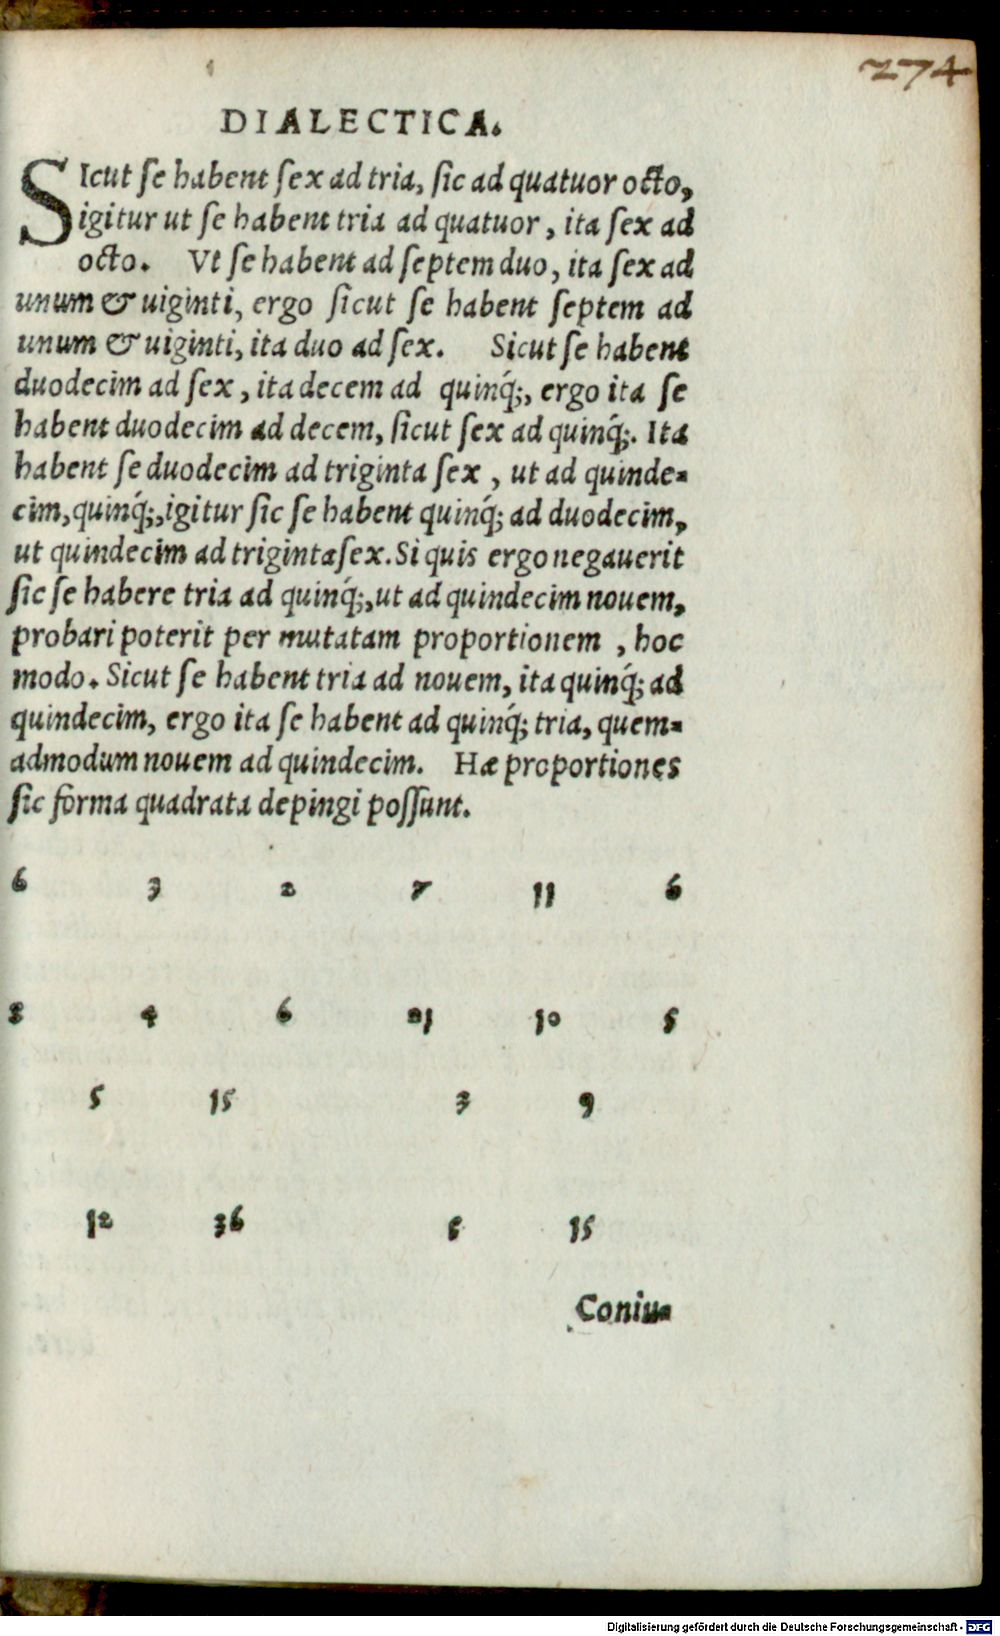 274
DIALECTICA.
SIcut ſe habent ſex ad tria, ſic ad quatuor octo,
igitur ut ſe habent tria ad quatuor, ita ſex ad
octo. Vt ſe habent ad ſeptem duo, ita ſex ad
unum & uiginti, ergo ſicut ſe habent ſeptem ad
unum & uiginti, ita duo ad ſex. Sicut ſe habent
duodecim ad ſex, ita decem ad quinq́;, ergo ita ſe
habent duodecim ad decem, ſicut ſex ad quinq́;. Ita
habent ſe duodecim ad triginta ſex, ut ad quinde-
cim, quinq́;, igitur ſic ſe habent quinq́; ad duodecim,
ut quindecim ad triginta ſex. Si quis ergo negauerit
ſic ſe habere tria ad quinq́;, ut ad quindecim nouem,
probari poterit per mutatam proportionem, hoc
modo. Sicut ſe habent tria ad nouem, ita quinq́; ad
quindecim, ergo ita ſe habent ad quinq́; tria, quem-
admodum nouem ad quindecim. Hæ proportiones
ſic forma quadrata depingi poſſunt.
6 3 2 7 11 6
8 4 6 21 10 5
5 15 3 9
12 36 5 15
Coniu-
Digitalisierung gefördert durch die Deutsche Forschungsgemeinschaft - DFG